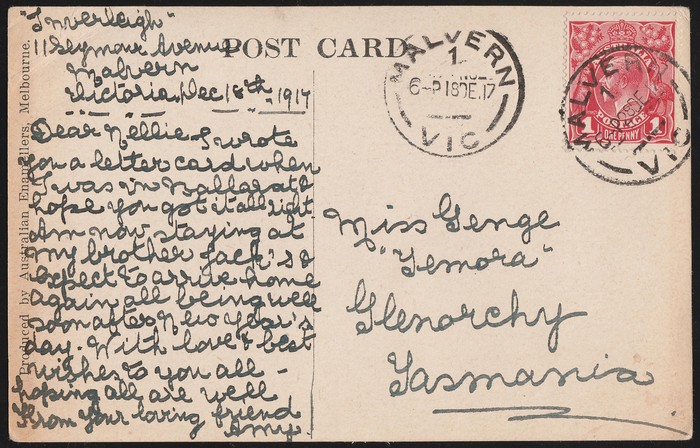 "Inverleigh"
11 Seymour Avenue
Malvern
Victoria, Dec 18th, 1917
Dear Nellie I wrote
you a letter card when
I was in Ballarat &
hope you got it all right.
Am now staying at
my brother Jack's &
expect to arrive home
again all being well
soon after New Year's
day. With love & best
wishes to you all -
hoping all are well
From your loving friend
Amy.
Produced by Australian Enamellers, Melbourne.
POST CARD
MALVERN
1
6-P 18DE.17
VIC
POSTAGE
1 ONE PENNY
MALVERN
1
18DE
VIC
Miss Genge
"Temora"
Glenorchy
Tasmania